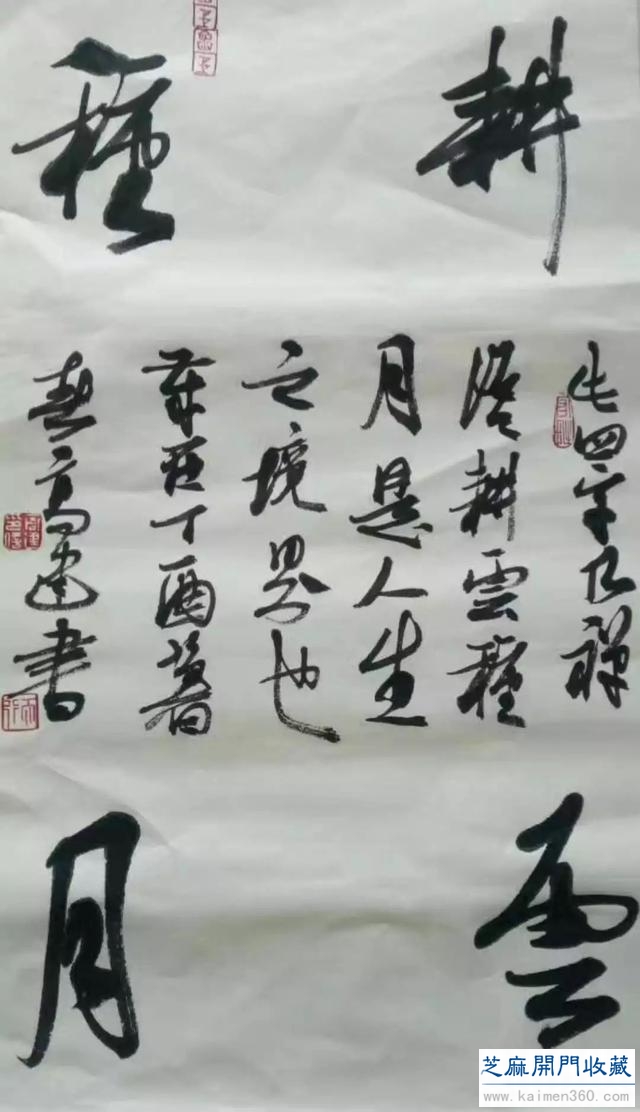 耕雲
種月
此四字乃禪
語耕雲種
月是人生
之境界也
丁酉
高建書
芝麻開門收藏
www.kaimen360.com